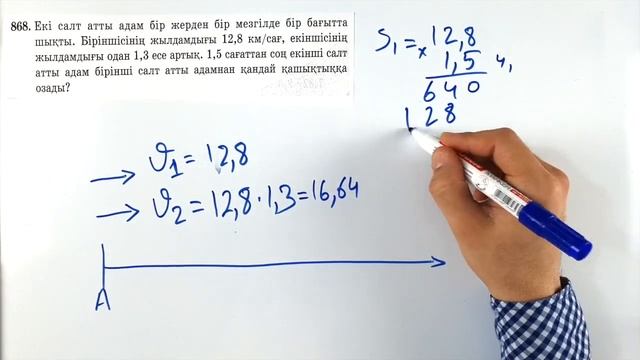 868. Екі салт атты адам бір жерден бір мезгілде бір бағытта
шықты. Біріншісінің жылдамдығы 12,8 км/сағ, екіншісінің
жылдамдығы одан 1,3 есе артық. 1,5 сағаттан соң екінші салт
атты адам бірінші салт атты адамнан қандай қашықтыққа
озады?
S₁ = × 12,8
1,5
640
128
ϑ₁ = 12,8
ϑ₂ = 12,8 · 1,3 = 16,64
A